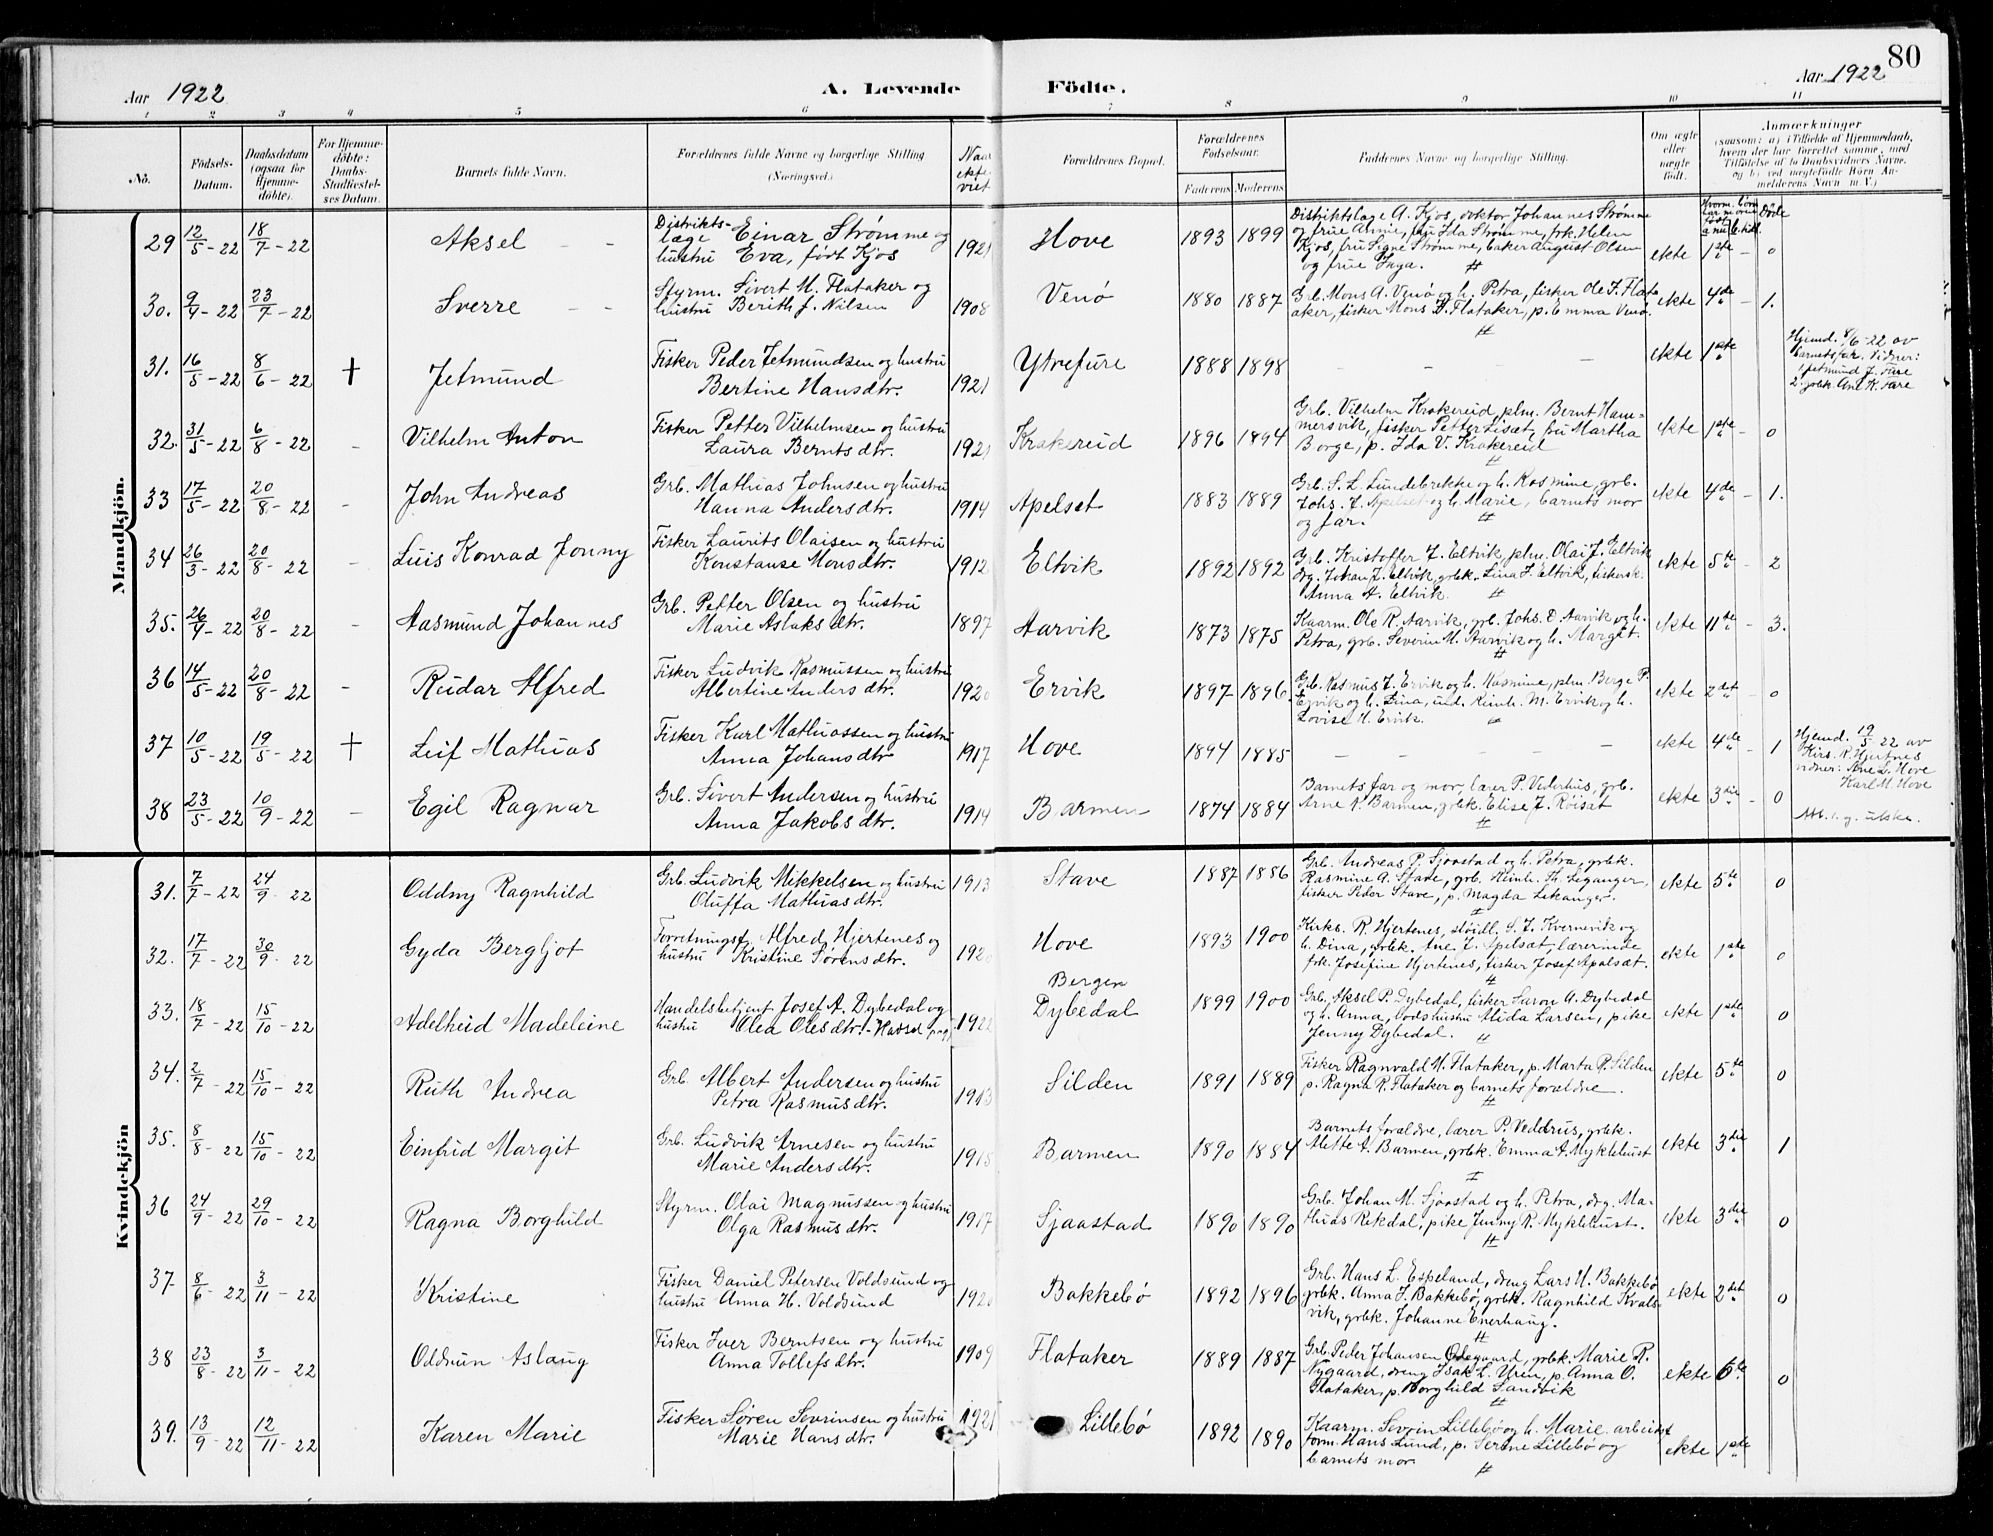 80
Aar 1922 A. Levende Födte. Aar 1922
1 2 3 4 5 6 7 8 9 10 11
No.
Födsels-
Datum.
Daabsdatum
(ogsaa for
Hjemme-
döbte).
For Hjemme-
döbte:
Daabs-
Stadfæstel-
ses Datum.
Barnets fulde Navn.
Forældrenes fulde Navne og borgerlige Stilling
(Næringsvei.)
Naar
ekte-
viet
Forældrenes Bopæl.
Forældrenes
Födselsaar.
Faderens Moderens
Faddrenes Navne og borgerlige Stilling.
Om ægte
eller
uægte
födt.
Anmærkninger
(saasom: a) i Tilfælde af Hjemmedaab,
hvem der har forrettet samme, med
Tilföielse af to Daabsvidners Navne,
og b) ved uægtefödte Börn An-
melderens Navn m. V.)
Mandkjön.
29 12/5-22 18/7-22 Aksel
Distrikts-
læge Einar Strømme og
hustru Eva, født Kjos 1921
Hove 1893 1899
Distriktslæge A. Kjos, doktor Johannes Strømme
og frue Anne, fru Ida Strømme, frk. Helen
Kjos, fru Signe Strømme, baker August Olsen
og frue Inga.
ekte 1ste - 0
30. 9/4-22 23/7-22 Sverre
Styrm. Sivert M. Flataker og
hustru Berith f. Nilsen 1908
Venø 1880 1887
Grb. Mons A. Venø og h. Petra, fisker Ole J. Flat-
aker, fisker Mons D. Flataker, p. Emma Venø.
ekte 4de - 1.
31. 16/5-22 8/6-22 + Jetmund
Fisker Peder Jetmundsen og hustru
Bertine Hansdtr. 1921
Ytrefure 1888 1898
ekte 1ste
Hjemd. 8/6-22 av
barnets far. Vidner:
1. Jetmund J. Fure
2. grbk. Ane K. Fure
32. 31/5-22 6/8-22 Vilhelm Anton
Fisker Petter Vilhelmsen og hustru
Laura Berntsdtr. 1921
Krakereid 1896 1894
Grb. Vilhelm Krakereid, plm. Bernt Ham-
mersvik, fisker Petter Lisæt, fru Martha
Borge, p. Ida V. Krakereid
ekte 1ste - 0
33 17/5-22 20/8-22 John Andreas
Grb. Mathias Johnsen og hustru
Hanna Andersdtr. 1914
Apelset 1883 1889
Grb. S. L. Lundebrekke og h. Rasmine, grb.
Johs. J. Apelset og h. Marie, barnets mor
og far.
ekte 4de - 1.
34 26/3-22 20/8-22 Luis Konrad Jonny
Fisker Laurits Olaisen og hustru
Konstanse Monsdtr. 1912
Eltvik 1892 1892
Grb. Kristoffer J. Eltvik, plm. Olai J. Eltvik
drg. Johan J. Eltvik, grbk. Lina J. Eltvik, fiskersk.
Anna A. Eltvik.
ekte 5te - 2
35. 26/4-22 20/8-22 Aasmund Johannes
Grb. Petter Olsen og hustru
Marie Aslaksdtr. 1897
Aarvik 1873 1875
Kaarm. Ole R. Aarvik, grb. Johs. O. Aarvik og h.
Petra, grb. Severin M. Aarvik og h. Margit.
ekte 11te - 3.
36 14/5-22 20/8-22 Reidar Alfred
Fisker Ludvik Rasmussen og hustru
Albertine Andersdtr. 1920
Ervik 1897 1896
Grb. Rasmus J. Ervik og h. Rasmine, plm. Berge P.
Ervik og h. Lina, ind. Reinh. M. Ervik og h.
Lovise H. Ervik.
ekte 2det - 0
37 10/5-22 19/5-22 + Leif Mathias
Fisker Karl Mathiassen og hustru
Anna Johansdtr 1917
Hove 1894 1885
ekte 4de - 1
Hjemd. 19/5-22 av
Kirs. R. Hjertnes
vidner: Ane L. Hove
Karl M. Hove
38 23/5-22 10/9-22 Egil Ragnar
Grb. Sivert Andersen og hustru
Anna Jakobsdtr. 1914
Barmen 1874 1884
Barnets far og mor, lærer P. Vederhus, grb.
Arne R. Barmen, grbk. Elise J. Röisæt
ekte 3die - 0
Kvindekjön
31. 7/7-22 24/9-22 Oddny Ragnhild
Grb. Ludvik Mikkelsen og hustru
Oluffa Mathiasdtr. 1913
Stave 1887 1886
Grb. Andreas P. Sjaastad og h. Petra, grbk.
Rasmine A. Stave, grb. Heinh. Th. Leganger,
fisker Peder Stave, p. Magda Lekanger.
ekte 5te 0
32. 17/7-22 30/9-22 Gyda Bergljot
Forretningsf. Alfred Hjertenes og
hustru Kristine Sørensdtr. 1920
Hove 1893 1900
Kirks. R. Hjertenes, støidl. S. J. Kvernevik og
h. Dina, grbk. Ane J. Apelsæt, lærerinde
frk. Josefine Hjertenes, fisker Josef Apalsæt.
ekte 1ste 0
33. 18/7-22 15/10-22 Adelheid Madeleine
Handelsbetjent Josef A. Dybedal og
hustru Olea Olesdtr. 1922
Bergen
Dybedal 1899 1900
Grb. Aksel P. Dybedal, fisker Saron A. Dybedal
og h. Anna, Alida Larsen, pike
Jenny Dybedal.
ekte 1ste 0
34. 2/7-22 15/10-22 Ruth Andrea
Grb. Albert Andersen og hustru
Petra Rasmusdtr. 1913
Silden 1891 1889
Fisker Ragnvald H. Flataker, p. Marta R. Silden
p. Ragna R. Flataker og barnets forældre.
ekte 5te 0
35. 8/8-22 15/10-22 Einfrid Margit
Grb. Ludvik Arnesen og hustru
Marie Andersdtr. 1915
Barmen 1890 1884
Barnets forældre, lærer P. Vedderus, grbk.
Mette A. Barmen, grbk. Emma A. Myklebust
ekte 3die 1
36 24/9-22 29/10-22 Ragna Borghild
Styrm. Olai Magnussen og hustru
Olga Rasmusdtr. 1917
Sjaastad 1890 1890
Grb. Johan M. Sjaastad og h. Petra, drg. Ma-
thias Rekdal, pike Jenny R. Myklebust.
ekte 3die 0
37 8/6-22 3/11-22 Kristine
Fisker Daniel Petersen Voldsund og
hustru Anna H. Voldsund 1920
Bakkebø 1892 1896
Grb. Hans L. Espeland, dreng Lars H. Bakkebø
grbk. Anna J. Bakkebø, grbk. Ragnhild Kvals-
vik, grbk. Johanne Enerhaug.
ekte 2det 0
38 23/8-22 3/11-22 Oddrun Aslaug
Fisker Iver Berntsen og hustru
Anna Tollefsdtr. 1909
Flataker 1889 1887
Grb. Peder Johansen Ødegaard, grbk. Marie R.
Nygaard, dreng Isak L. Uren, p. Anna O.
Flataker, p. Borghild Sandvik
ekte 6te 0
39. 13/9-22 12/11-22 Karen Marie
Fisker Søren Sevrinsen og hustru
Marie Hansdtr. 1921
Lillebø 1892 1890
Kaarm. Sevrin Lillebø og h. Marie, arbeids-
form. Hans Lund, p. Serine Lillebø og
barnets mor.
ekte 1ste